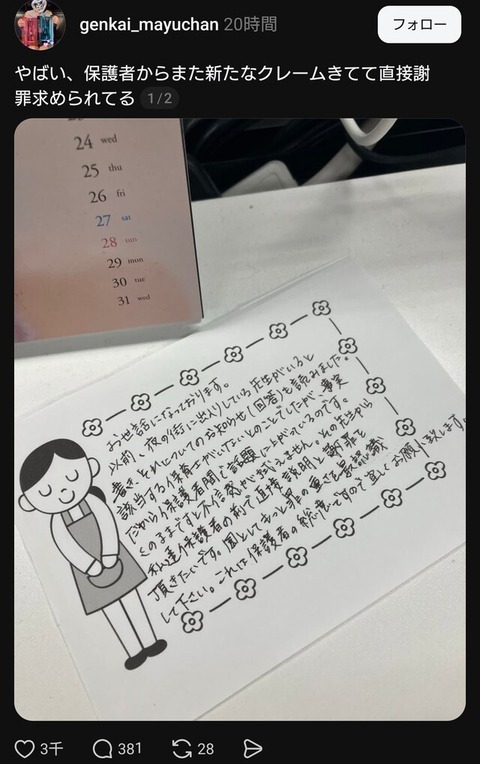 genkai_mayuchan 20時間
フォロー
やばい、保護者からまた新たなクレームきてて直接謝
罪求められてる 1/2
24 wed
25 thu
26 fri
27 sat
28 sun
29 mon
30 tue
31 wed
お世話になっております。
以前、夜の街に出入りしている先生がいると
書き、それについてのお知らせ(回答)も読みました。
該当する保育士がいないとのことでしたが、事実
だから保護者間で話題に上がっているのです。
このままですと不信感しか拭えません。その先生から
私達保護者の前で直接説明と謝罪を
頂きたいです。園としてもっと罪の重さを再認識
して下さい。これは保護者の総意ですので宜しくお願い致します。
3千
381
28